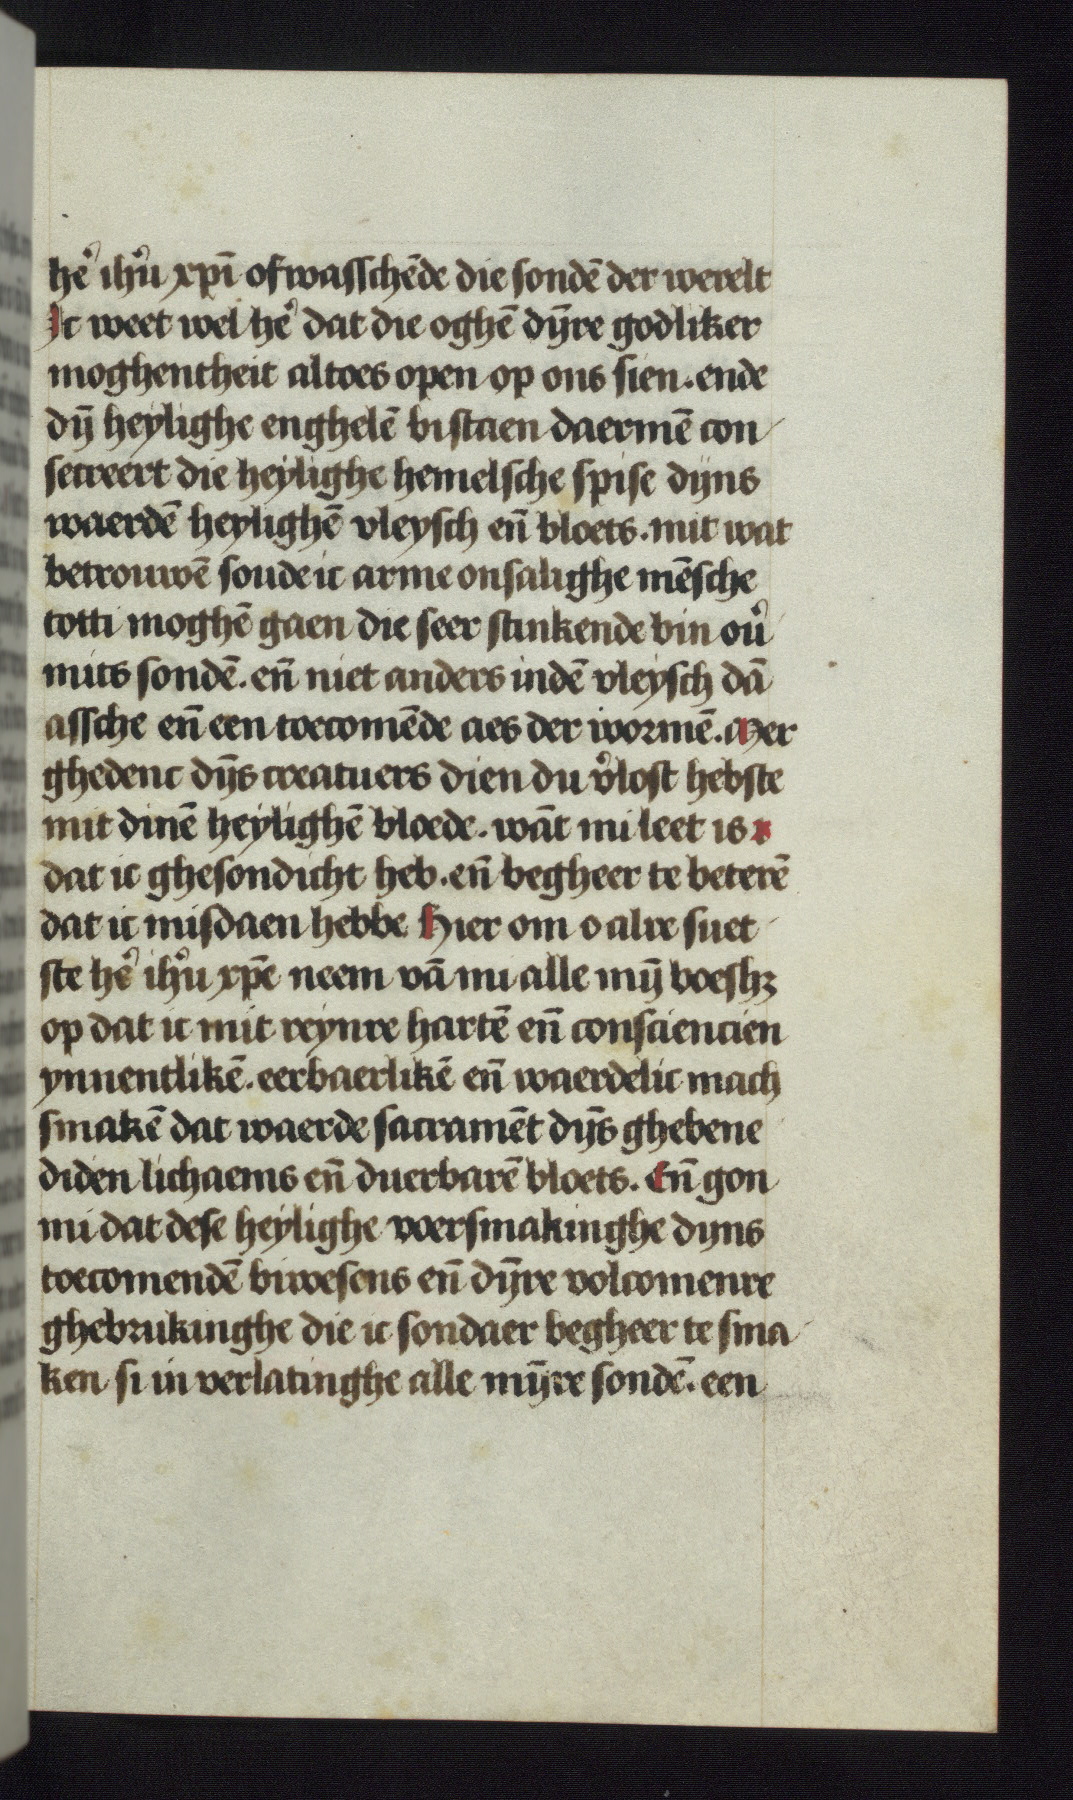 he᷒ ihu᷒ xp̄i ofwasschēde die sondē der werelt
Ic weet wel he᷒ dat die oghē dȳre godliker
moghentheit altoes open op ons sien. ende
dȳ heylighe enghelē bistaen daermē con
secreert die heylighe hemelsche spise dyns
waerdē heylighē vleysch en̄ bloets. mit wat
betrouwē soude ic arme onsalighe mēsche
totti moghē gaen die seer stinkende bin ou᷒
mits sondē. en̄ niet anders indē vleysch dā
assche en̄ een toecomēde aes der wormē. Mer
ghedenc dȳs creatuers dien du v᷒lost hebste
mit dinē heylighē bloede. wāt mi leet is
dat ic ghesondicht heb. en̄ begheer te beterē
dat ic misdaen hebbe Hier om o alre suet
ste he᷒ ihu᷒ xp̄e neem vā mi alle mȳ boeshꝫ
op dat ic mit reynre hartē en̄ consciencien
ynnentlikē. eerbaerlikē en̄ waerdelic mach
smakē dat waerde sacramēt dȳs ghebene
diden lichaems en̄ duerbarē bloets. En̄ gon
mi dat dese heylighe voersmakinghe dyns
toecomendē biwesens en̄ dȳre volcomenre
ghebrukinghe die ic sondaer begheer te sma
ken si in verlatinghe alle mȳre sondē. een